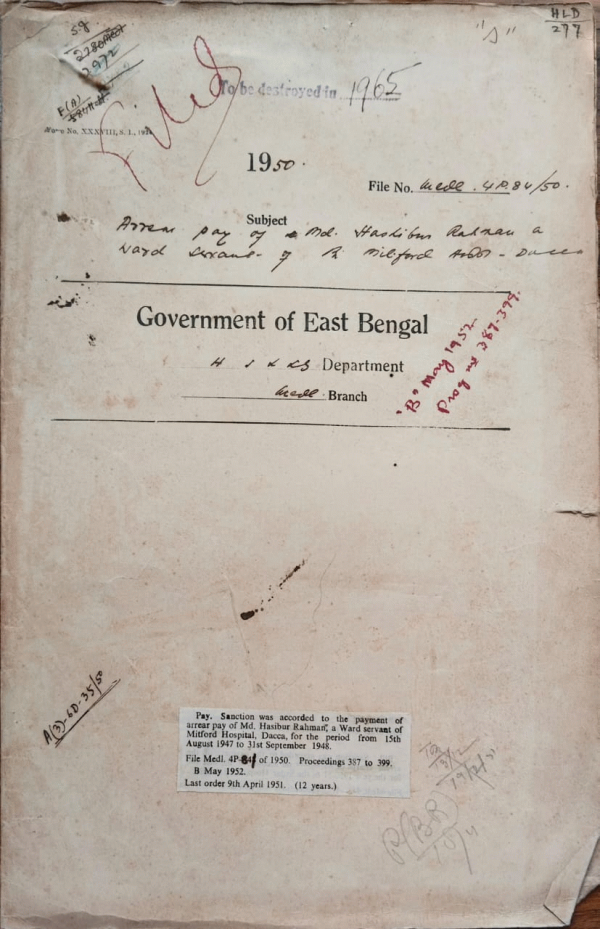 HLD
277
"S"
2972
E(A)
Filed
To be destroyed in 1965
Form No. XXXVIII, S. I., 19
1950.
File No. Medl. 4P.84/50.
Subject
Arrear pay of a Md. Hashibur Rahman a
ward servant of Mitford - Dacca
Government of East Bengal
H S & LS Department
Medl Branch
"B" May 1952
Prog 387-399.
A(3)-6D-35/50
Pay. Sanction was accorded to the payment of
arrear pay of Md. Hasibur Rahman, a Ward servant of
Mitford Hospital, Dacca, for the period from 15th
August 1947 to 31st September 1948.
File Medl. 4P-84 of 1950. Proceedings 387 to 399.
B May 1952.
Last order 9th April 1951. (12 years.)